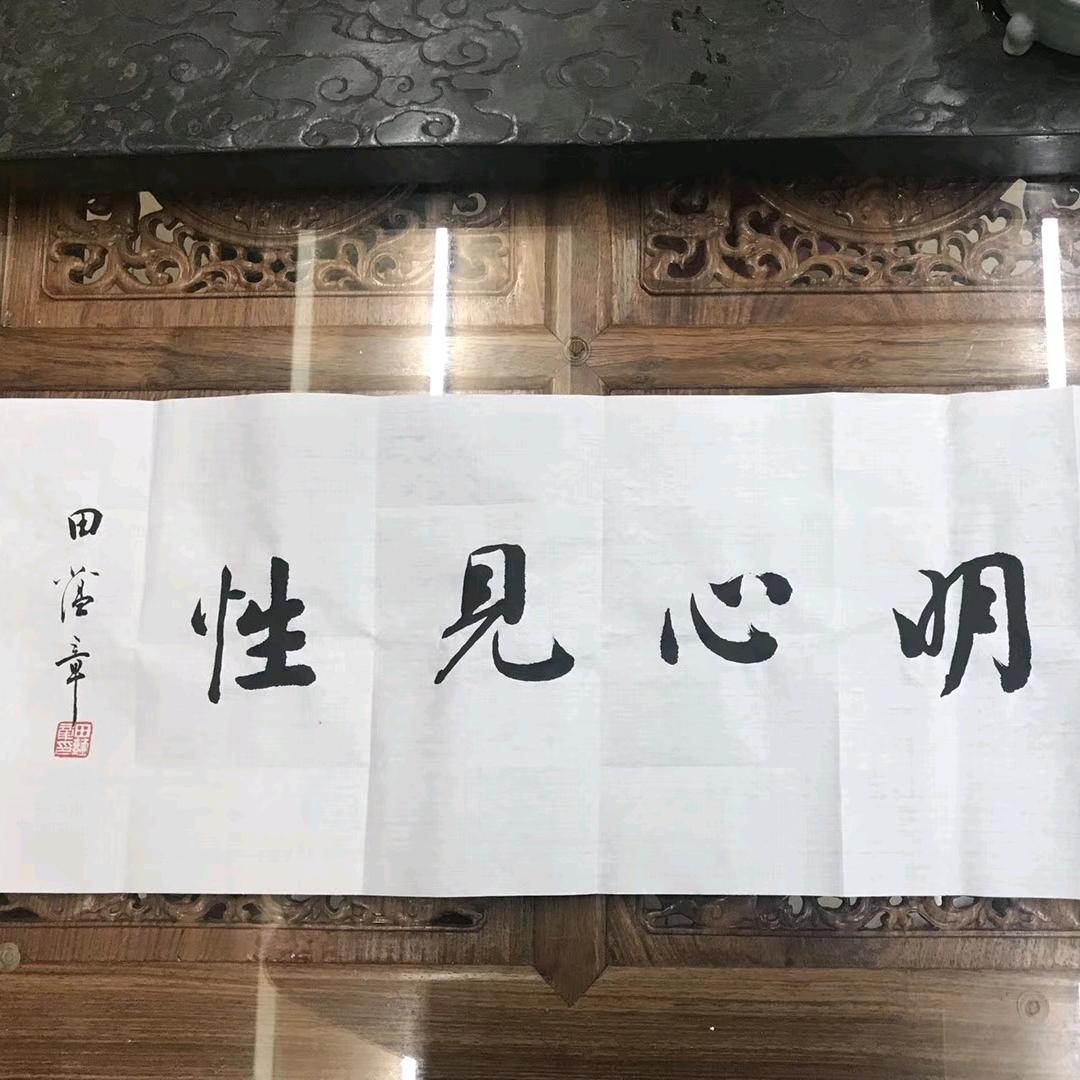 明心見性
田蕴章